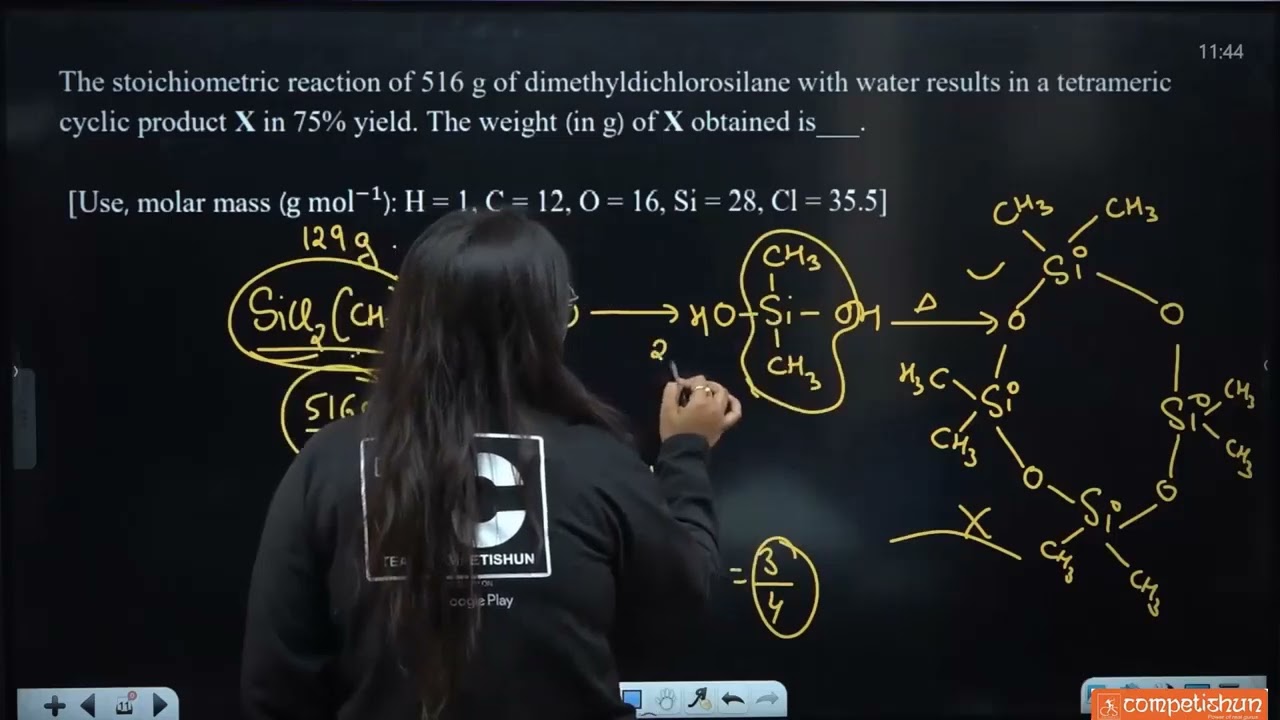 11:44
The stoichiometric reaction of 516 g of dimethyldichlorosilane with water results in a tetrameric
cyclic product X in 75% yield. The weight (in g) of X obtained is___.
[Use, molar mass (g mol⁻¹): H = 1, C = 12, O = 16, Si = 28, Cl = 35.5]
129g
SiCl₂(CH
516
2
CH₃
HO-Si-OH
CH₃
Δ
CH₃ CH₃
Si
O O
H₃C Si
CH₃
Si CH₃
CH₃
O O
Si
CH₃
CH₃
X
= 3/4
C
TEA MPETISHUN
ON
oogle Play
11
competishun